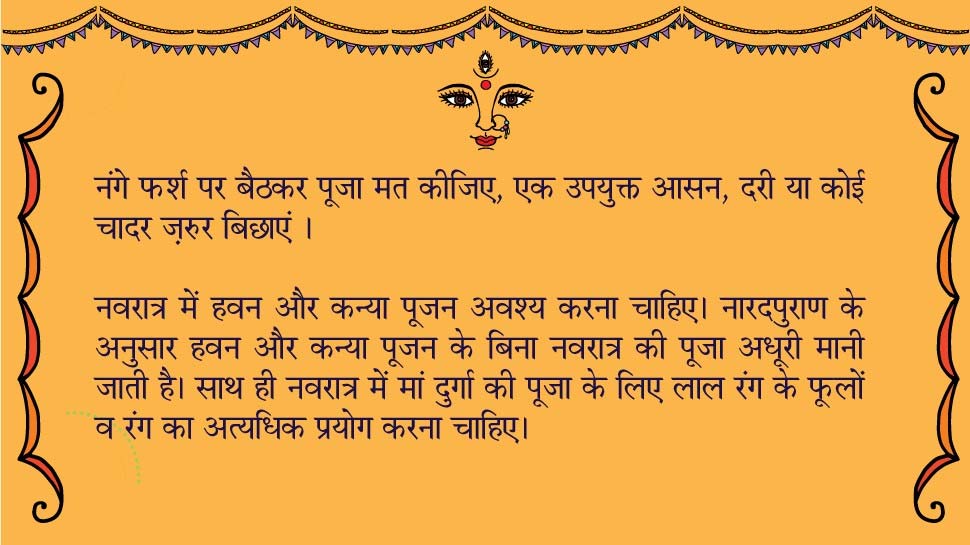 नंगे फर्श पर बैठकर पूजा मत कीजिए, एक उपयुक्त आसन, दरी या कोई
चादर ज़रुर बिछाएं ।
नवरात्र में हवन और कन्या पूजन अवश्य करना चाहिए। नारदपुराण के
अनुसार हवन और कन्या पूजन के बिना नवरात्र की पूजा अधूरी मानी
जाती है। साथ ही नवरात्र में मां दुर्गा की पूजा के लिए लाल रंग के फूलों
व रंग का अत्यधिक प्रयोग करना चाहिए।